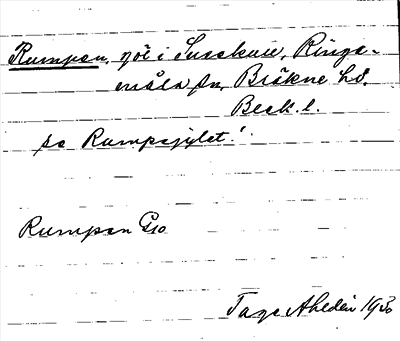 Rumpen, göl i Susekull, Ringa-
måla sn, Bräkne hd.
Blek. l.
se Rumpegylet!
Rumpen Geo
Tage Ahldén 1930